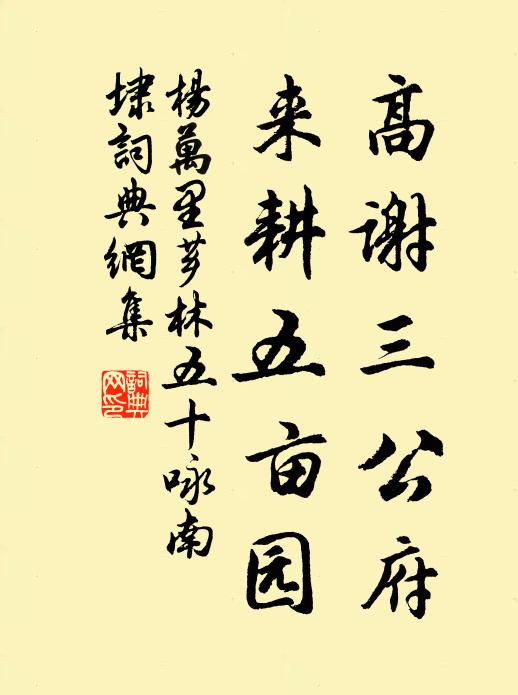 高谢三公府
来耕五亩园
楊萬里芗林五十咏南
埭詞典網集
詞典网印